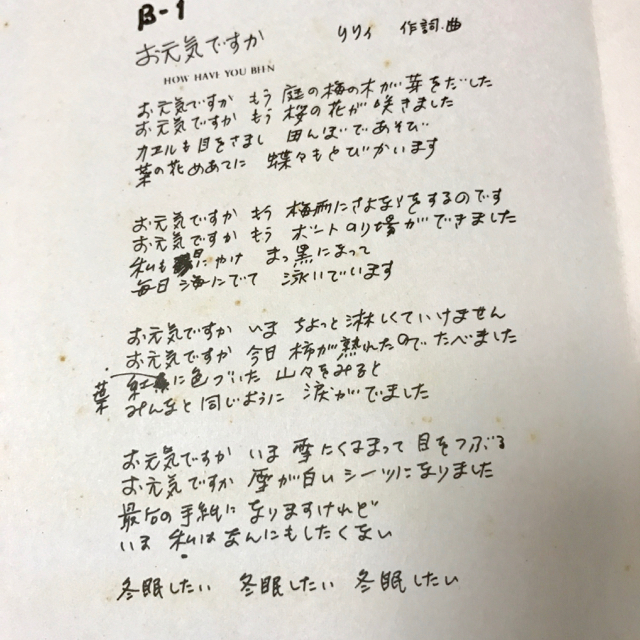 B-1
お元気ですか　リリィ　作詞.曲
HOW HAVE YOU BEEN
お元気ですか　もう　庭の梅の木が芽をだした
お元気ですか　もう　桜の花が咲きました
カエルも目をさまし　田んぼであそび
菜の花めあてに　蝶々もとびかいます
お元気ですか　もう　梅雨にさよなりをするのです
お元気ですか　もう　ボートのり場ができました
私も日にやけ　まっ黒になって
毎日海にでて　泳いでいます
お元気ですか　いま　ちょっと淋しくていけません
お元気ですか　今日　柿が熟れたのでたべました
紅葉に色づいた　山々をみると
みんなと同じように　涙がでました
お元気ですか　いま　雪にくるまって目をつぶる
お元気ですか　雪が白いシーツになりました
最后の手紙になりますけれど
いま　私はなんにもしたくない
冬眠したい　冬眠したい　冬眠したい